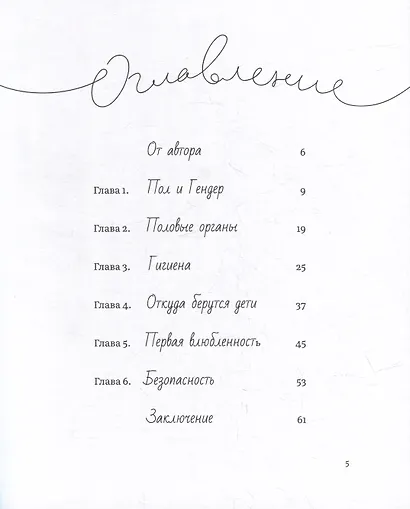 Оглавление
От автора 6
Глава 1. Пол и Гендер 9
Глава 2. Половые органы 19
Глава 3. Гигиена 25
Глава 4. Откуда берутся дети 37
Глава 5. Первая влюбленность 45
Глава 6. Безопасность 53
Заключение 61
5